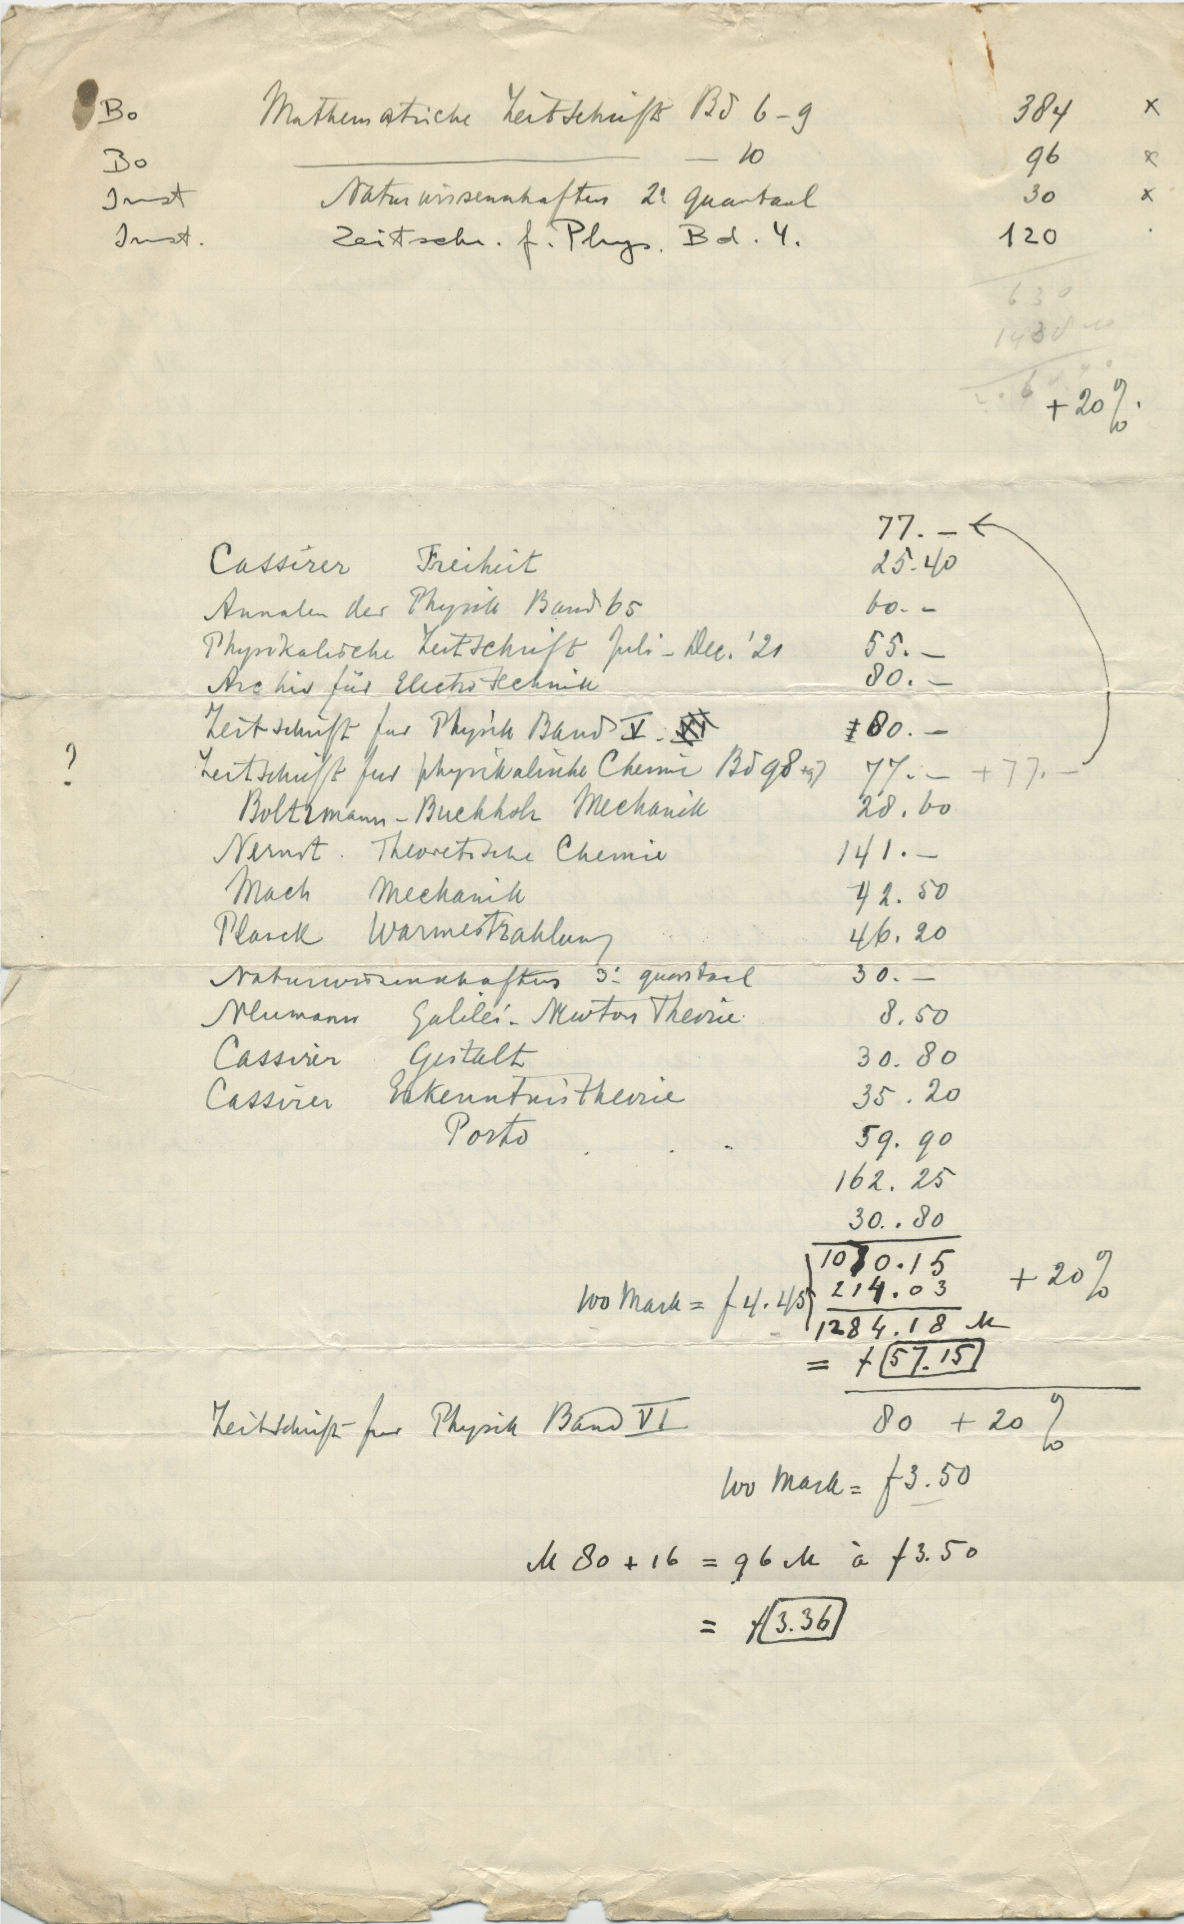 Bo Mathematische Zeitschrift Bd 6-9 384 x
Bo — 10 96 x
Inst Naturwissenschaften 2e quartaal 30 x
Inst. Zeitschr. f. Phys. Bd. 4. 120
630
+20%.
77.-
Cassirer Freiheit 25.40
Annalen der Physik Band 65 60.-
Physikalische Zeitschrift Juli-Dec. '21 55.-
Archiv für Electrotechnik 80.-
Zeitschrift fur Physik Band V. 80.-
? Zeitschrift fur physikalische Chemie Bd 98 +97 77.- +77.-
Boltzmann-Buchholz Mechanik 28.60
Nernst. Theoretische Chemie 141.-
Mach Mechanik 42.50
Planck Warmestrahlung 46.20
Naturwissenschaften 3e quartaal 30.-
Neumann Galilei-Newton Theorie 8.50
Cassirer Gestalt 30.80
Cassirer Erkenntnistheorie 35.20
Porto 59.90
162.25
30.80
1070.15 +20%
100 Mark = f 4.45 214.03
1284.18 M
= f 57.15
Zeitschrift fur Physik Band VI 80 +20%
100 Mark = f 3.50
M 80 + 16 = 96 M à f 3.50
= f 3.36